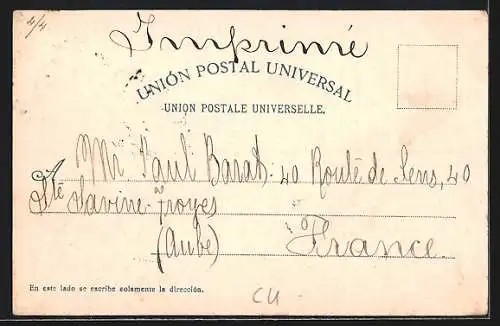 4/4
Imprimé
UNIÓN POSTAL UNIVERSAL
UNION POSTALE UNIVERSELLE.
À Mr Paul Barat. 40 Route de Sens, 40
Ste Savine-Troyes
(Aube) France
En este lado se escribe solamente la dirección.
CU